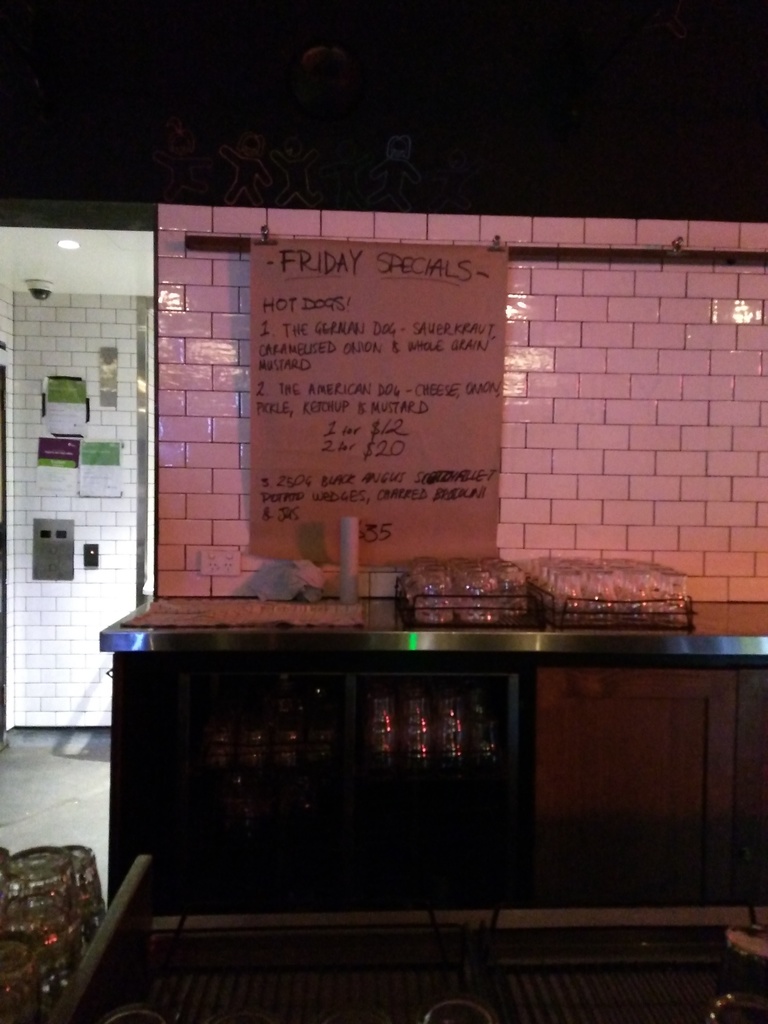 - FRIDAY SPECIALS -
HOT DOGS!
1. THE GERMAN DOG - SAUERKRAUT,
CARAMELISED ONION & WHOLE GRAIN
MUSTARD
2. THE AMERICAN DOG - CHEESE, ONION,
PICKLE, KETCHUP & MUSTARD
1 for $12
2 for $20
3 250G BLACK ANGUS
POTATO WEDGES, CHARRED
& JUS
35